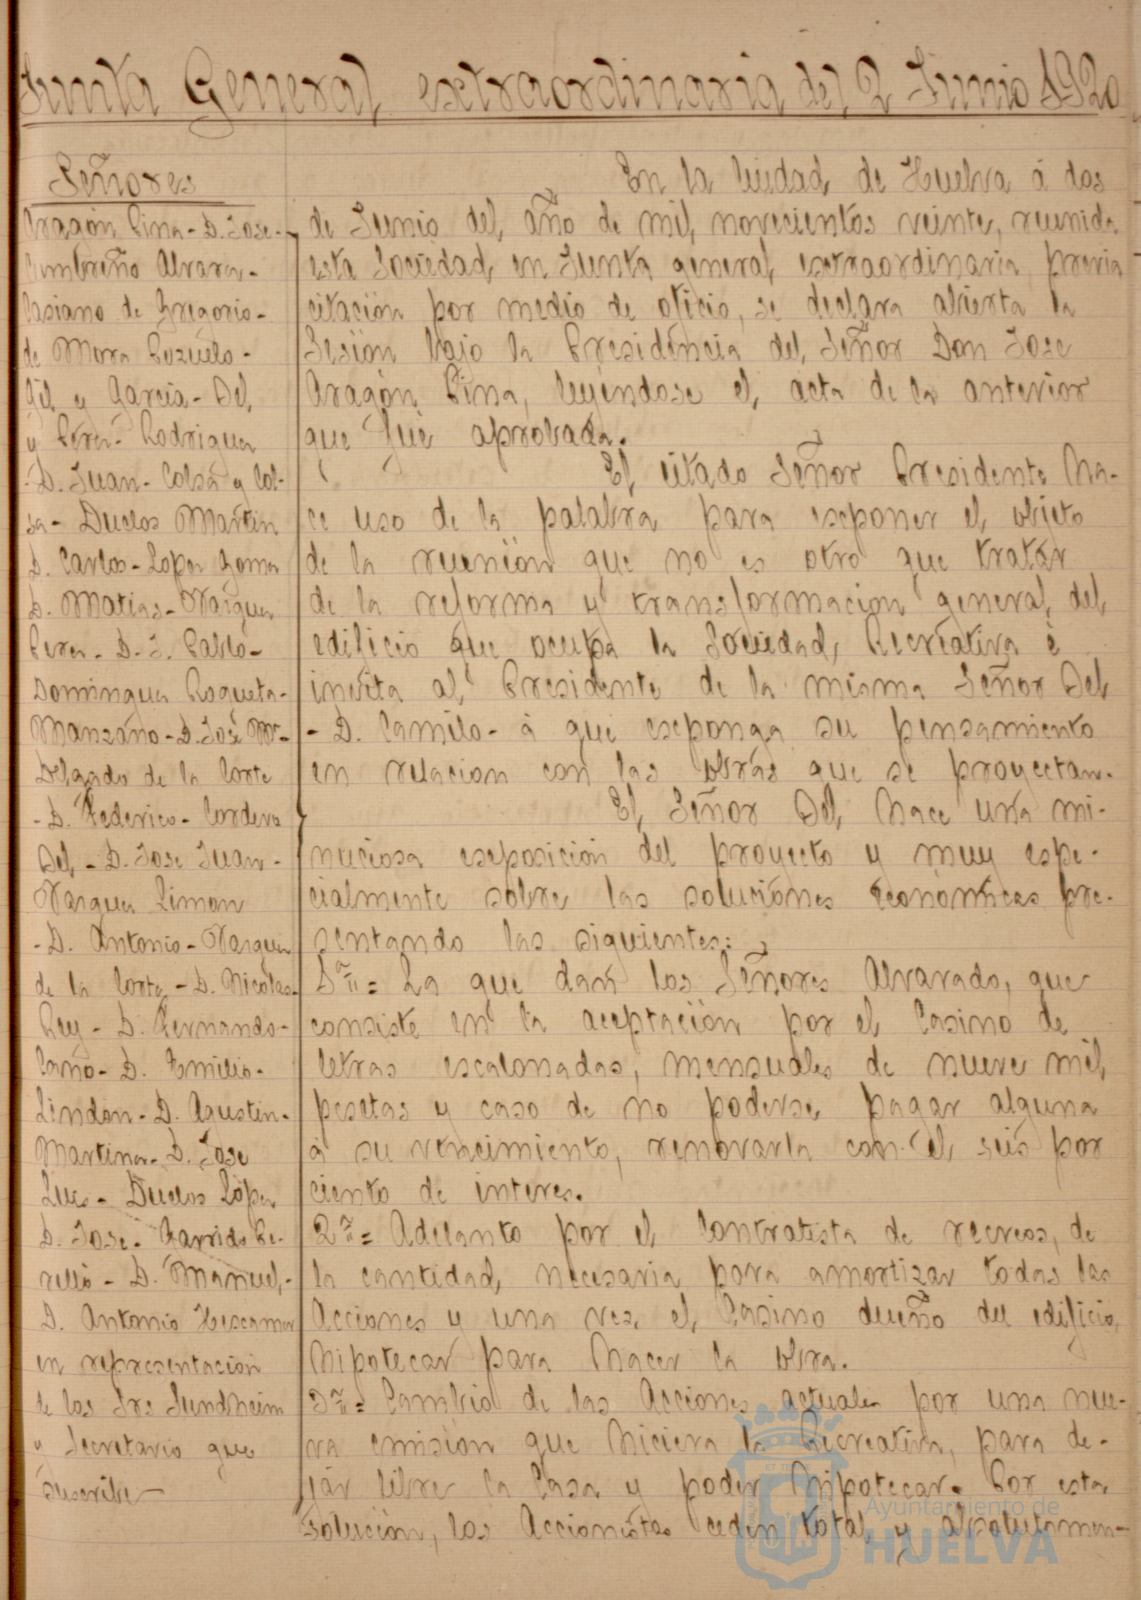 Junta General, extraordinaria del 2 Junio 1920
Señores
Aragón Pina - D. Jose -
Cumbreño Alvarez -
Casiano de Gregorio -
de Mora Pozuelo -
Gil y Garcia - Del
y Perez - Rodriguez
- D. Juan - Colsa y Col-
sa - Duclos Martin
D. Carlos - Lopez Gomez
D. Matias - Vazquez
Perez - D. J. Pablo -
Dominguez Roqueta -
Manzano - D. José Mª -
Delgado de la Corte
- D. Federico - Cordero
Del, - D. Jose Juan -
Vazquez Limon
- D. Antonio - Vazquez
de la Corte, - D. Nicolas -
Rey - D. Fernando -
Cano - D. Emilio -
Lindon - D. Agustin -
Martinez - D. Jose
Luis - Duclos López
D. Jose - Garrido Pe-
relló - D. Manuel, -
D. Antonio
en representación
de los Srs Sundheim
y Secretario que
suscribe
En la Ciudad, de Huelva á dos
de Junio del, año de mil, novecientos veinte, reunida
esta Sociedad, en Junta general, extraordinaria, previa
citación por medio de oficio, se declara abierta la
Sesión bajo la Presidencia del, Señor Don Jose
Aragón Pina, leyéndose el, acta de la anterior
que fué aprobada.
El, citado Señor Presidente ha-
ce uso de la palabra, para exponer el, objeto
de la reunión que no es otro que tratar
de la reforma y transformacion general, del,
edificio que ocupa la Sociedad, Recreativa é
invita al, Presidente de la misma Señor Del,
- D. Camilo - á que exponga su pensamiento
en relacion con las obras que se proyectan.
El, Señor Del, hace una mi-
nuciosa exposición del proyecto y muy espe-
cialmente sobre las soluciones económicas pre-
sentando las siguientes:
1ª = La que dan los Señores Alvarado, que
consiste en la aceptación por el, Casino de
letras escalonadas, mensuales de nueve mil,
pesetas y caso de no poderse, pagar alguna
á su vencimiento, renovarla con el, seis por
ciento de interes.
2ª = Adelanto por el, contratista de recreos, de
la cantidad, necesaria para amortizar todas las
Acciones y una vez, el, Casino dueño del edificio,
hipotecar para hacer la obra.
3ª = Cambio de las Acciones actuales por una nue-
va emisión que hiciera la Recreativa, para de-
jar libre la Casa y poder hipotecar. Por esta
solución, los Accionistas ceden total, y absolutamen-
Ayuntamiento de
HUELVA